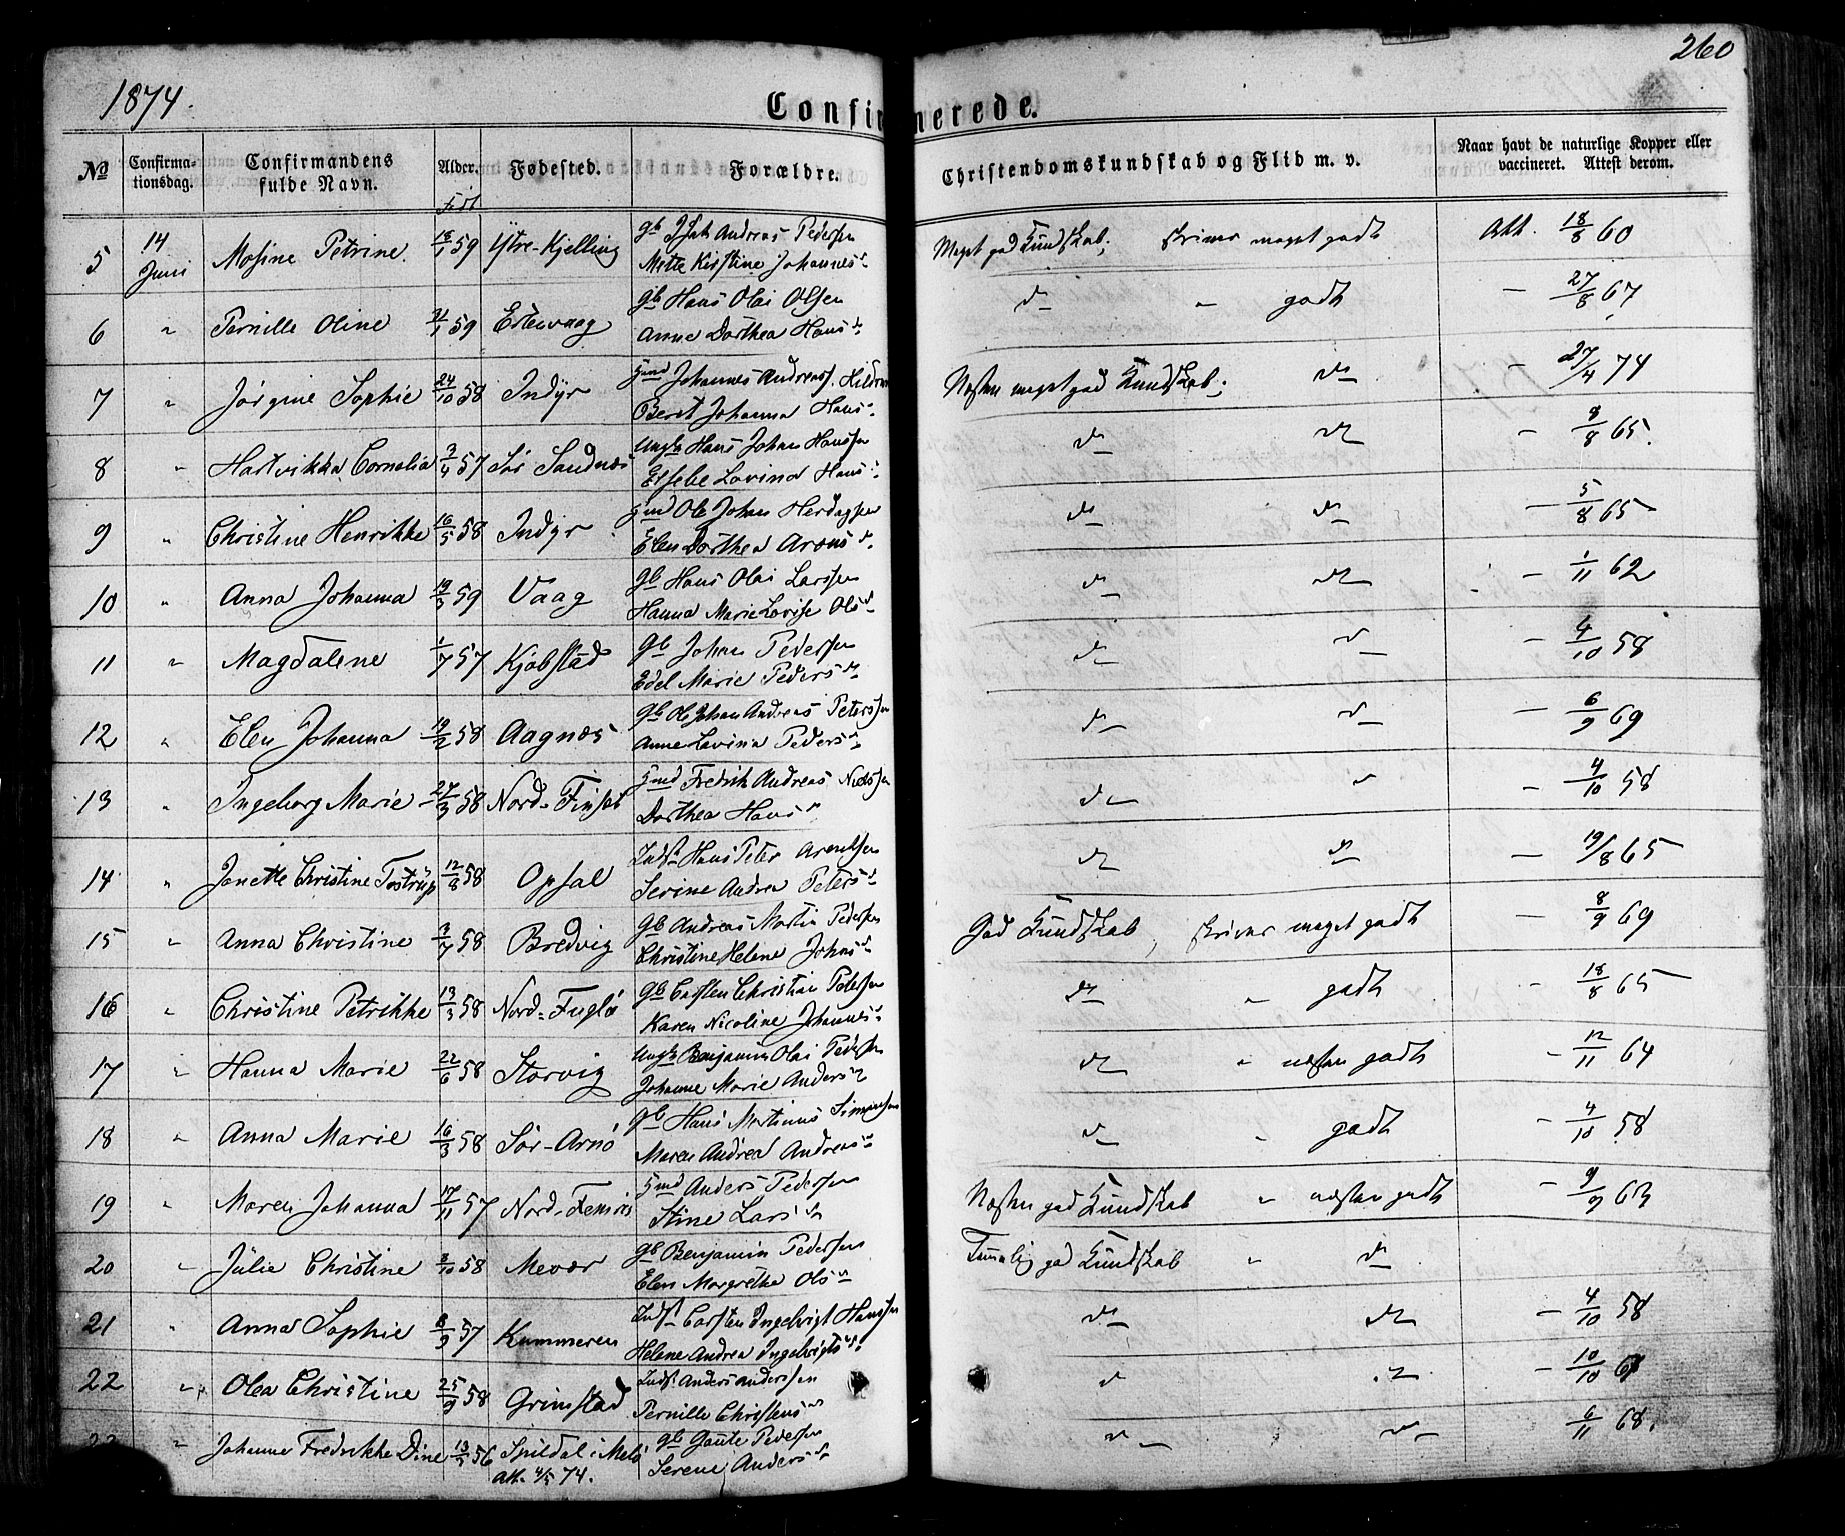 1874.
260
Confirmerede.
No
Confirma-
tionsdag.
Confirmandens
fulde Navn.
Alder.
Fødested.
Forældre.
Christendomskundskab og Flid m. v.
Naar havt de naturlige Kopper eller
vaccineret. Attest derom.
Født
5 14 Juni Mosine Petrine 18/1 59 Ystre-Kjelling gb Andreas Pedersen
Mette Kirstine Johannes d.
Meget god Kundskab; skriver meget godt Att. 18/8 60
6 " Pernille Oline 59 gb Hans Olai Olsen
Anne Dorthea Hans d.
do " godt - 27/8 67
7 " Jørgine Sophie 24/10 58 Indyr Hmd Johannes Andreass.
Berit Johanna Hans d.
Næsten meget god Kundskab; do - 27/4 74
8 " Hartvikka Cornelia 3/4 57 Sør Sandnes Ungk Hans Johan Hanssen
Elsebe Lovina Hans d.
do do - 8/8 65.
9 " Christine Henrikke 16/5 58 Indyr Hmd Ole Johan Herdagsen
Elen Dorthea Arons d.
do do - 5/8 65
10 " Anna Johanna 19/3 59 Vaag gb Hans Olai Larssen
Hanna Marie Lovise Ols d.
do do - 1/11 62
11 " Magdalene 1/7 57 Kjøbstad gb Johan Pedersen
Edel Marie Peders d.
do do - 4/10 58
12 " Elen Johanna 19/2 58 Aagnæs gb Ole Johan Andreas Peterssen
Anne Lavina Peders d.
do do - 6/9 69
13 " Ingeborg Marie 27/3 58 Nord- Hmd Fredrik Andreas Nielssen
Dorthea Hans d.
do do - 4/10 58
14 " Janette Christine Tostrup 12/8 58 Opsal Inds. Hans Peter Arentsen
Serine Andrea Peters d.
do do - 19/8 65
15 " Anna Christine 3/7 58 Bredvig gb Andreas Martin Pedersen
Christine Helene Johns d.
God Kundskab, skriver meget godt - 8/9 69
16 " Christine Petrikke 13/3 58 Nord-Fuglø gb Carsten Christian Petersen
Karen Nicoline Johannes d.
do " godt - 18/8 65
17 " Hanna Marie 22/6 58 Storvig Ungk Benjamin Olai Pedersen
Johanne Marie Anders d.
do " næsten godt - 12/11 64
18 " Anna Marie 16/3 58 Sør-Arnø gb Hans Martinus Simonsen
Maren Andrea Andreas d.
do " godt - 4/10 58
19 " Maren Johanna 17/11 57 Nord- Hmd Anders Pedersen
Stine Lars d.
Næsten god Kundskab " næsten godt - 9/9 63
20 " Julie Christine 3/10 58 Mevær gb Benjamin Pedersen
Elen Margrethe Ols d.
Temmelig god Kundskab " do
21 " Anna Sophie 8/9 57 Kummeren Inds. Carsten Ingebrigt Hanssen
Helene Andrea Ingebrigts d.
do do - 4/10 58
22 " Olea Christine 25/9 58 Grimstad Inds. Anders Anderssen
Pernille Christens d.
do do - 10/10
" Johanne Fredrikke Dine 56 Spildal i Melø gb Gaute Pedersen
Att. 4/5 74. Serene Anders d.
do do 6/11 68.